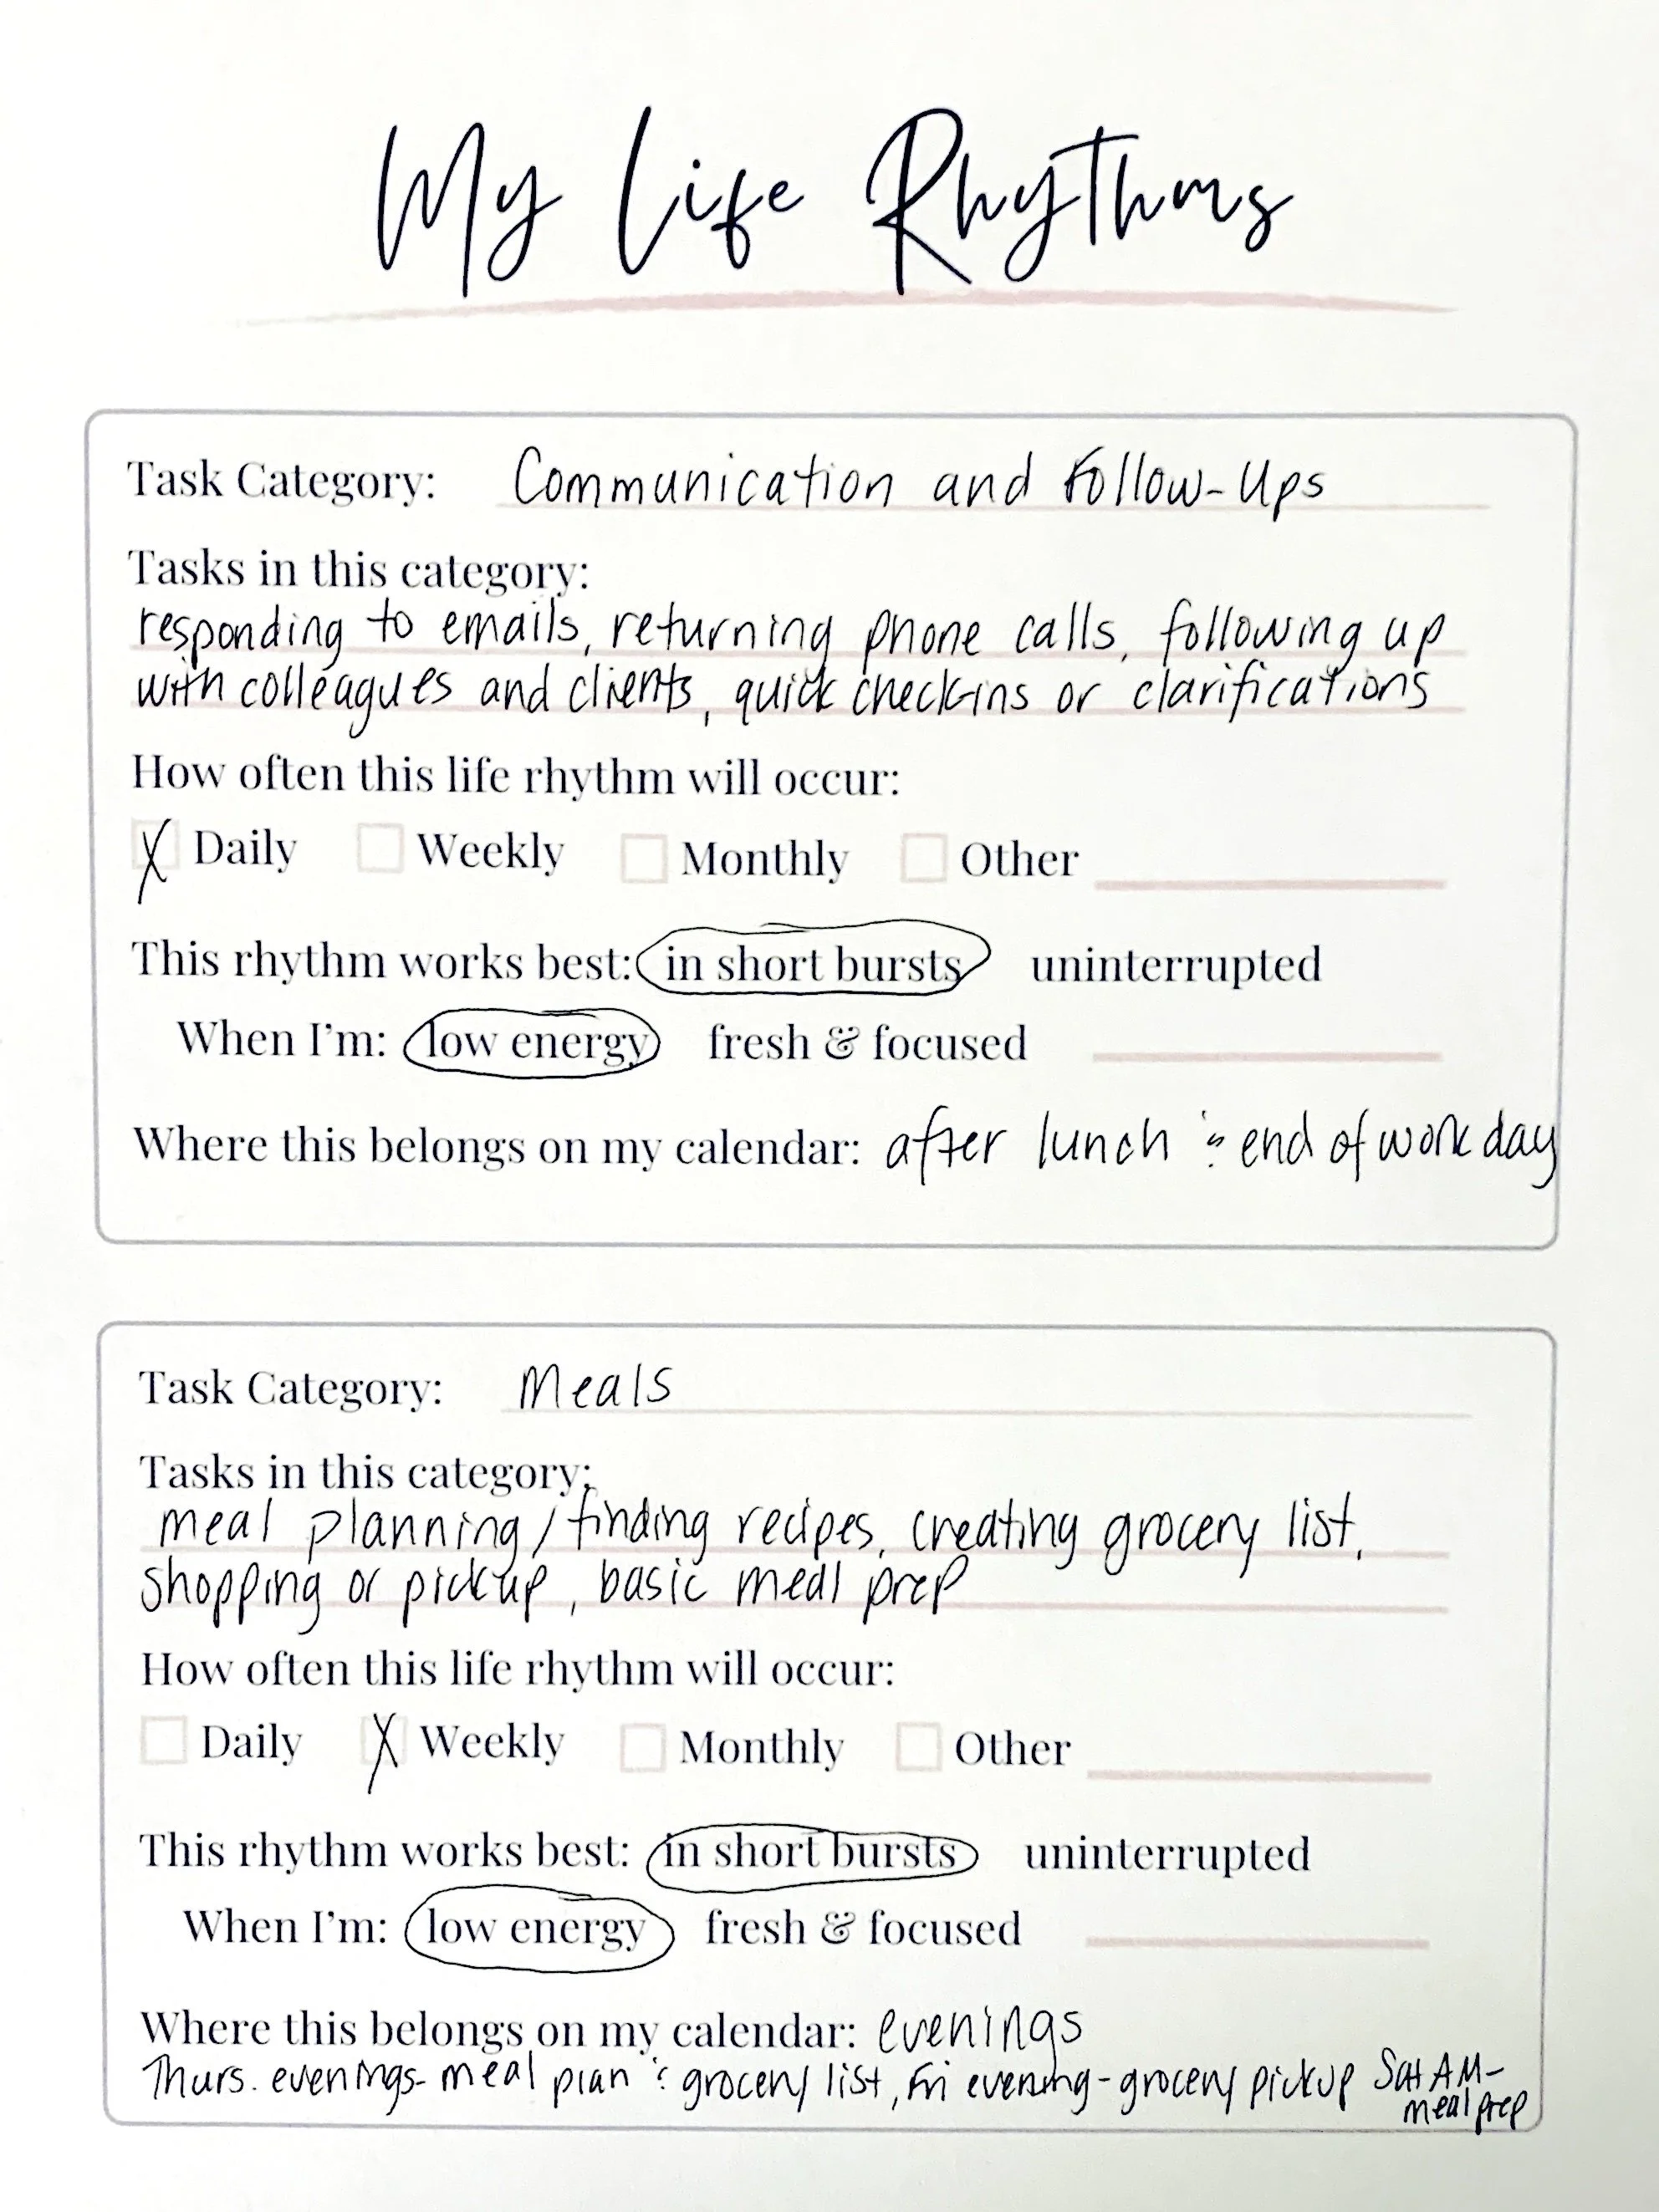 My Life Rhythms
Task Category: Communication and Follow-Ups
Tasks in this category:
responding to emails, returning phone calls, following up
with colleagues and clients, quick check-ins or clarifications
How often this life rhythm will occur:
X Daily Weekly Monthly Other
This rhythm works best: in short bursts uninterrupted
When I'm: low energy fresh & focused
Where this belongs on my calendar: after lunch & end of work day
Task Category: Meals
Tasks in this category:
meal planning/finding recipes, creating grocery list,
shopping or pickup, basic meal prep
How often this life rhythm will occur:
Daily X Weekly Monthly Other
This rhythm works best: in short bursts uninterrupted
When I'm: low energy fresh & focused
Where this belongs on my calendar: evenings
Thurs. evenings- meal plan & grocery list, Fri evening - grocery pickup Sat AM-
meal prep